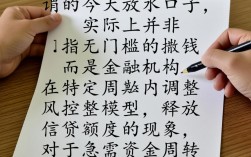 谓的今天放水口子，
实际上并非
指无门槛的撒钱
而是金融机构
在特定周期内调整
风控整模型，释放
信贷额度的现象，
对于急需资金周转